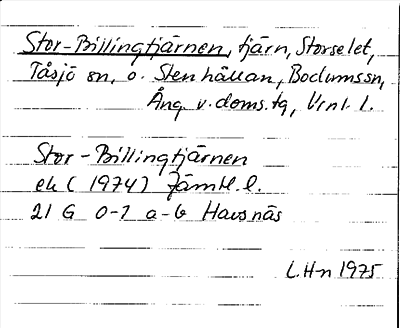 Stor-Billingtjärnen, tjärn, Storselet,
Tåsjö sn, o. Stenhällan, Bodumssn,
Ång. v. doms.tg, Vrnl. l.
Stor-Billingtjärnen
ek (1974) Jämtl. l.
21 G 0-1 a-b Havsnäs
L.H-n 1975